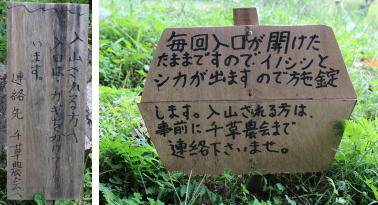 入山される方へ
入口はカギをかけて
います。
連絡先 千草農会へ
毎回入口が開けた
たままですのでイノシシと
シカが出ますので施錠
します。入山される方は、
事前に千草農会まで
連絡下さいませ。